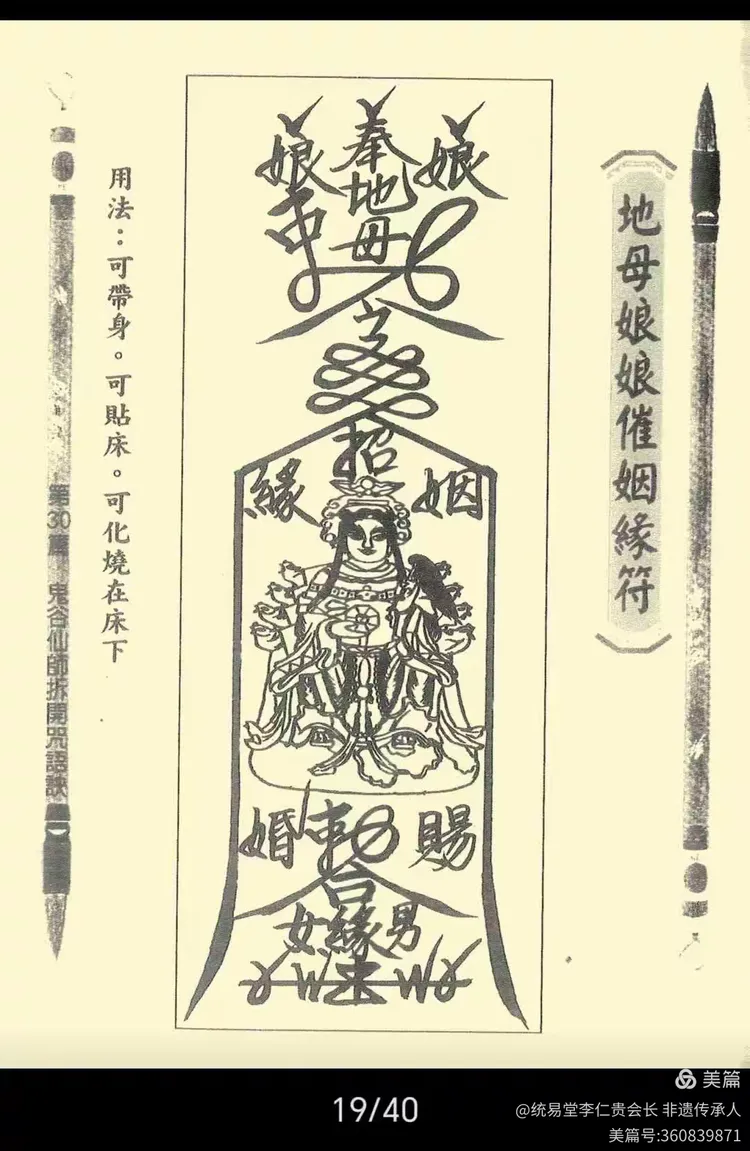 地母娘娘催姻緣符
娘奉娘
地
母
招
姻緣
賜婚
合
男緣女
用法：可帶身。可貼床。可化燒在床下
第30篇 鬼谷仙師拆開咒語訣
19/40
美篇
@统易堂李仁贵会长 非遗传承人
美篇号:360839871